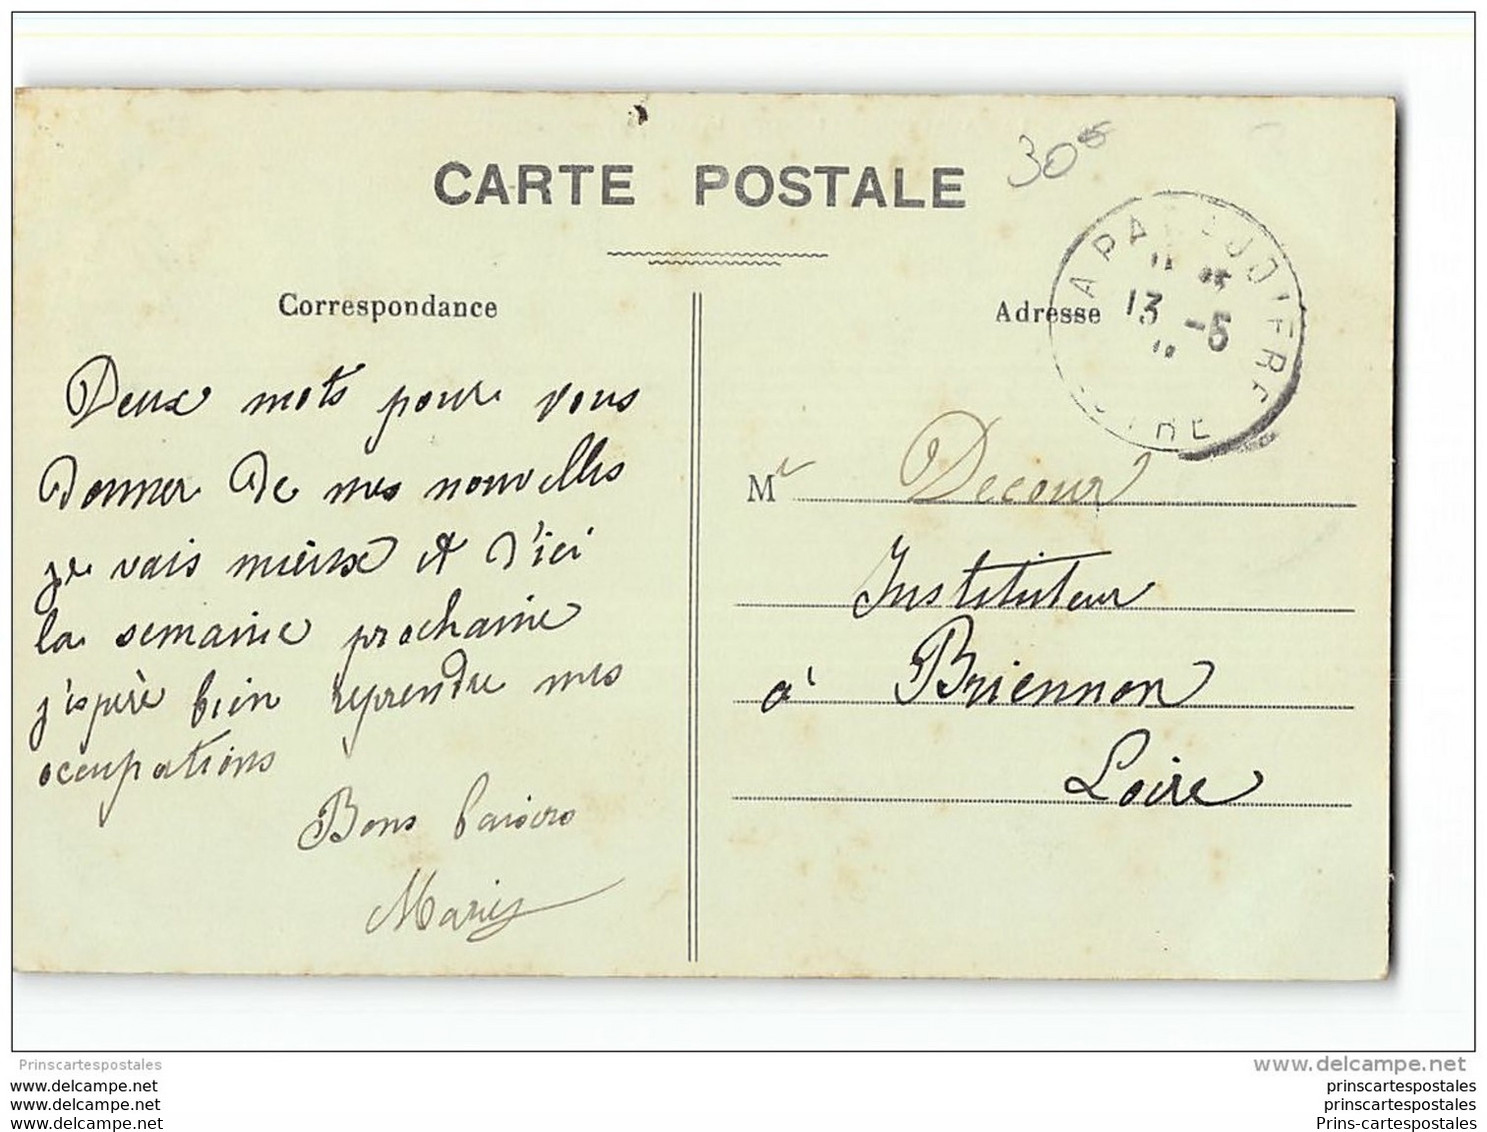 CARTE POSTALE
30
Correspondance
Deux mots pour vous
donner de mes nouvelles
je vais mieux et d'ici
la semaine prochaine
j'espère bien reprendre mes
occupations
Bons baisers
Marie
Adresse
13 -5
LOIRE
Mr Decour
Instituteur
à Briennon
Loire
Prinscartespostales
www.delcampe.net
www.delcampe.net
www.delcampe.net
www.delcampe.net
prinscartespostales
prinscartespostales
Prins-cartespostales